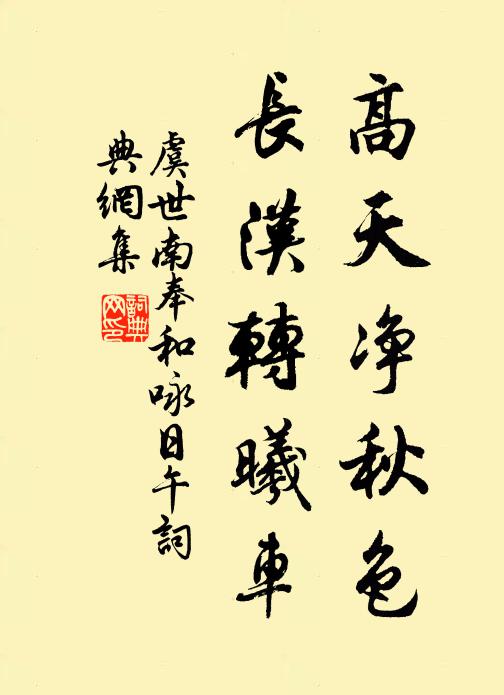 高天净秋色
長漢轉曦車
虞世南奉和咏日午詞
典網集
詞典
网印